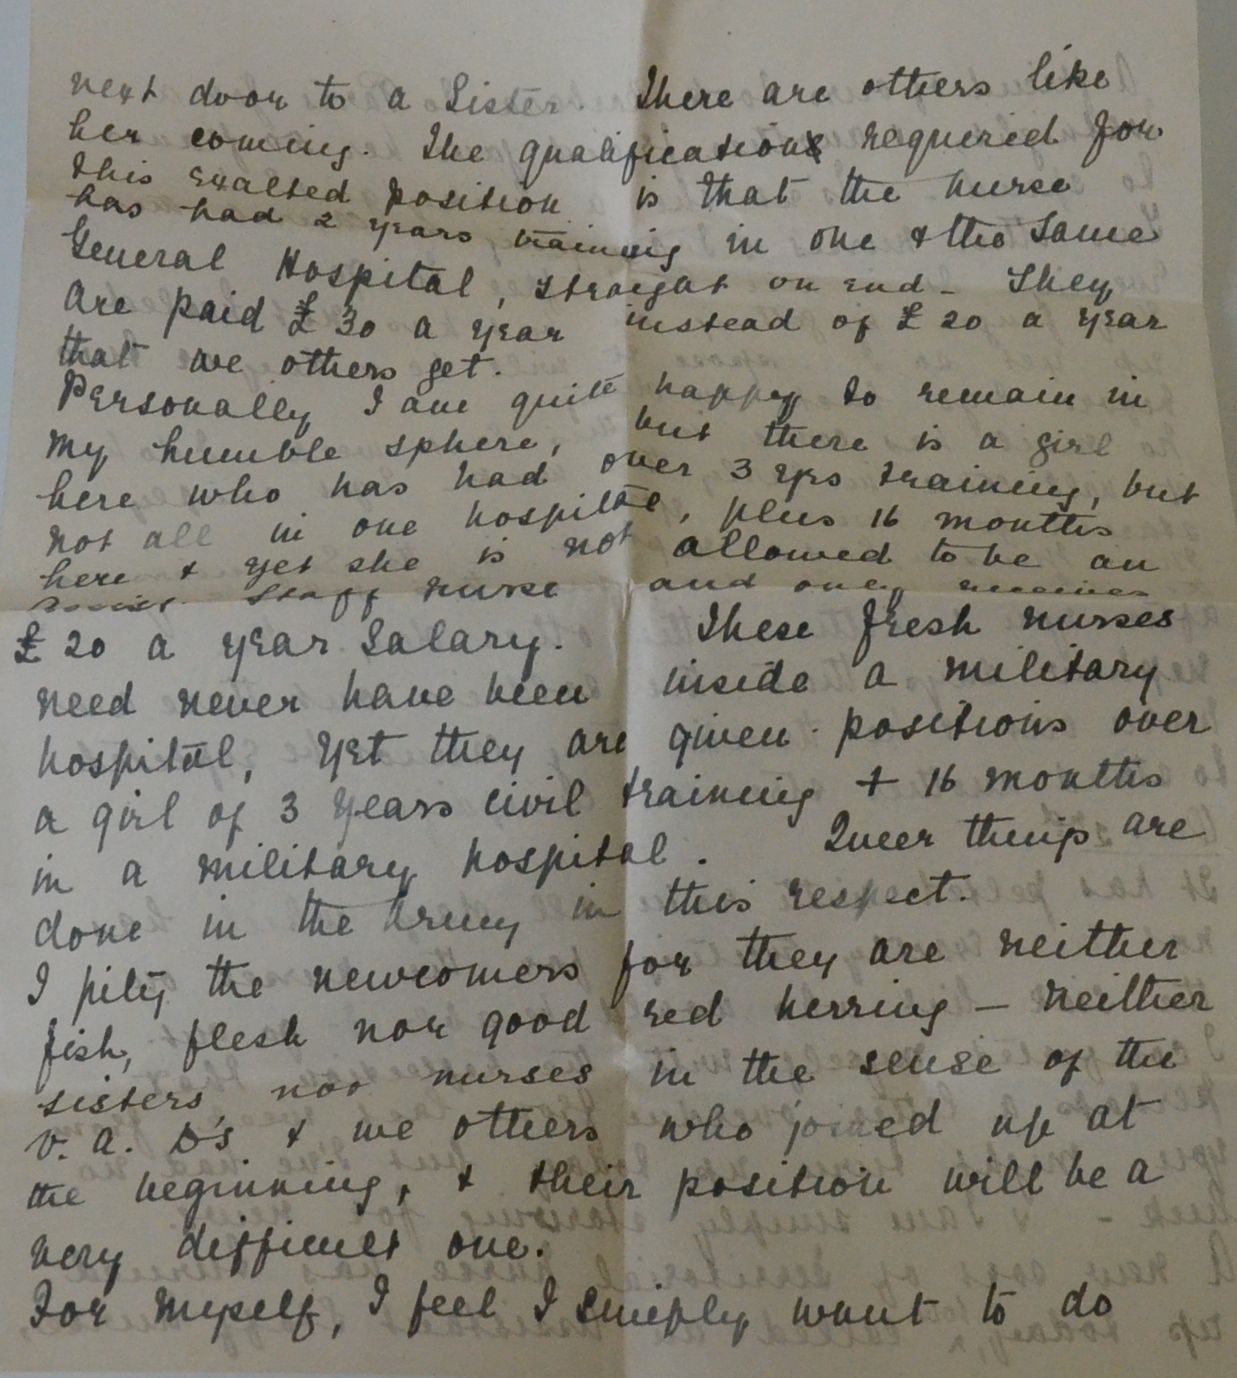 next door to a Sister. There are others like
her coming. The qualification required for
this exalted position is that the nurse
has had 2 years training in one & the same
General Hospital, straight on end - They
are paid £30 a year instead of £20 a year
that we others get.
Personally I am quite happy to remain in
my humble sphere, but there is a girl
here who has had over 3 yrs training, but
not all in one hospital, plus 16 months
here & yet she is not allowed to be an
Staff nurse and only receives
£20 a year Salary. These fresh nurses
need never have been inside a military
hospital, yet they are given positions over
a girl of 3 years civil training + 16 months
in a military hospital. Queer things are
done in the Army in this respect.
I pity the newcomers for they are neither
fish, flesh nor good red herring – neither
sisters, nor nurses in the sense of the
V.A.D's & we others who joined up at
the beginning, & their position will be a
very difficult one.
For myself, I feel I simply want to do